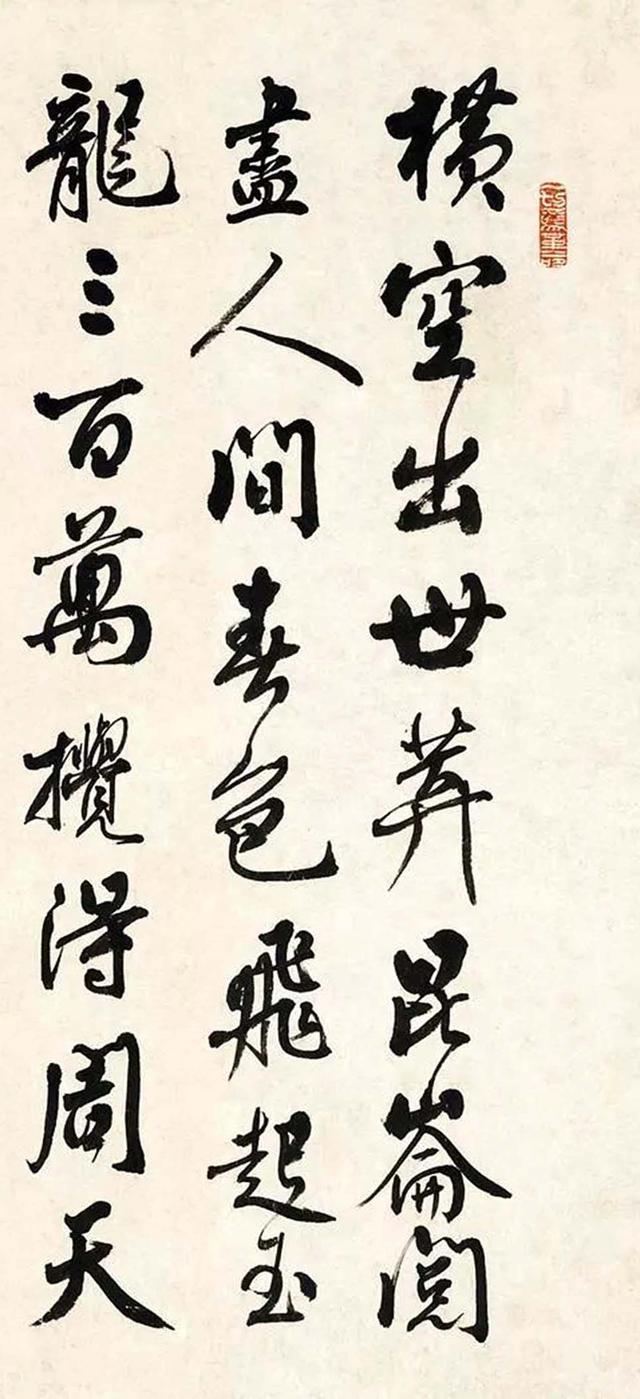 橫空出世莽昆崙閱
盡人間春色飛起玉
龍三百萬攪得周天